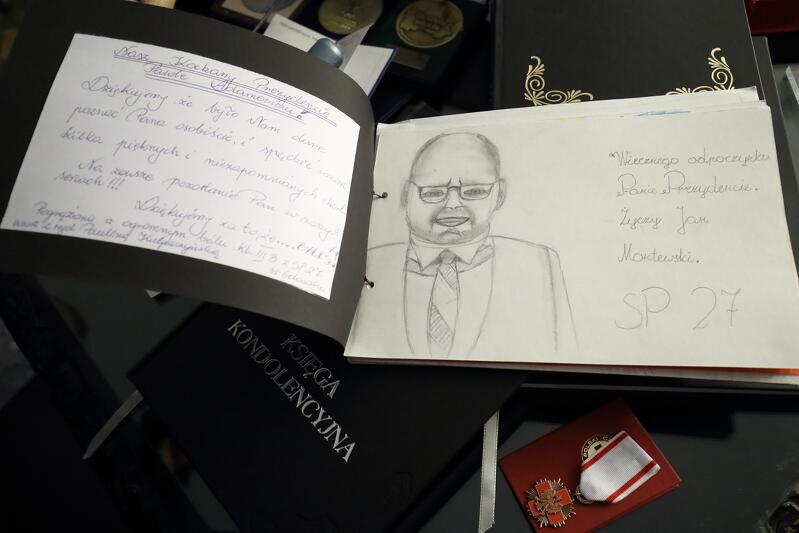 Nasz Kochany Prezydencie
Pawle Adamowiczu!
Dziękujemy, że było Nam dane
poznać Pana osobiście, i spędzić razem
kilka pięknych i niezapomnianych chwil.
Na zawsze pozostanie Pan w naszych
sercach!!!
Dziękujemy za to, że...
Pogrążona w ogromnym bólu kl. III B z SP 27
wraz z wych. Pauliną
w Gdańsku
"Wiecznego odpoczynku
Panie Prezydencie.
Życzy Jan
Montewski.
SP 27
KSIĘGA
KONDOLENCYJNA
POLSKI